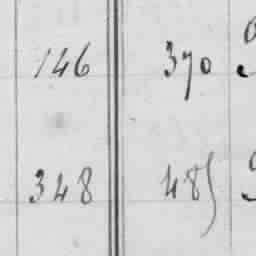 146 370
348 485